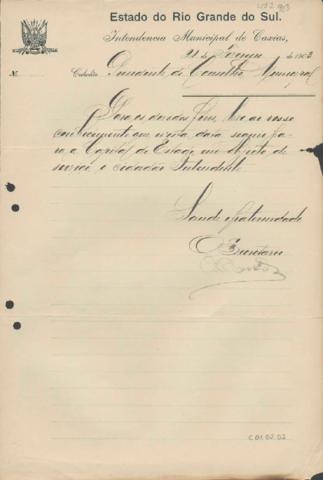 Estado do Rio Grande do Sul.
Intendencia Municipal de Caxias,
21 de Janeiro de 1903
Nº
Cidadão Presidente do Conselho Municipal
Para os devidos fins, levo ao vosso
conhecimento que nesta data segue pa-
ra a Capital do Estado, em objecto de
serviço, o cidadão Intendente.
Saude e fraternidade
O Secretario
C 01.02.02